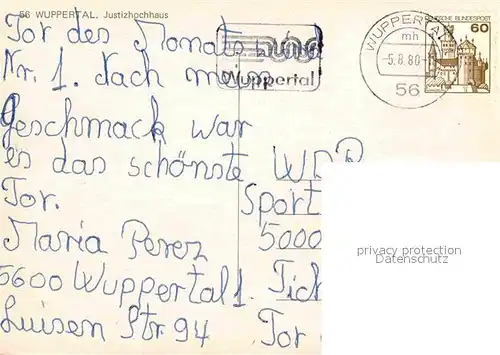 56 WUPPERTAL. Justizhochhaus
Tor des Monats und
Nr. 1. Nach mein
Geschmack war
es das schönste
Tor.
Maria Perez
5600 Wuppertal 1.
Luisen Str 94
Wuppertal
WUPPERTAL
mh
-5.8.80-
56
DEUTSCHE BUNDESPOST
60
WDR
Sport
5000
Tor
privacy protection
Datenschutz